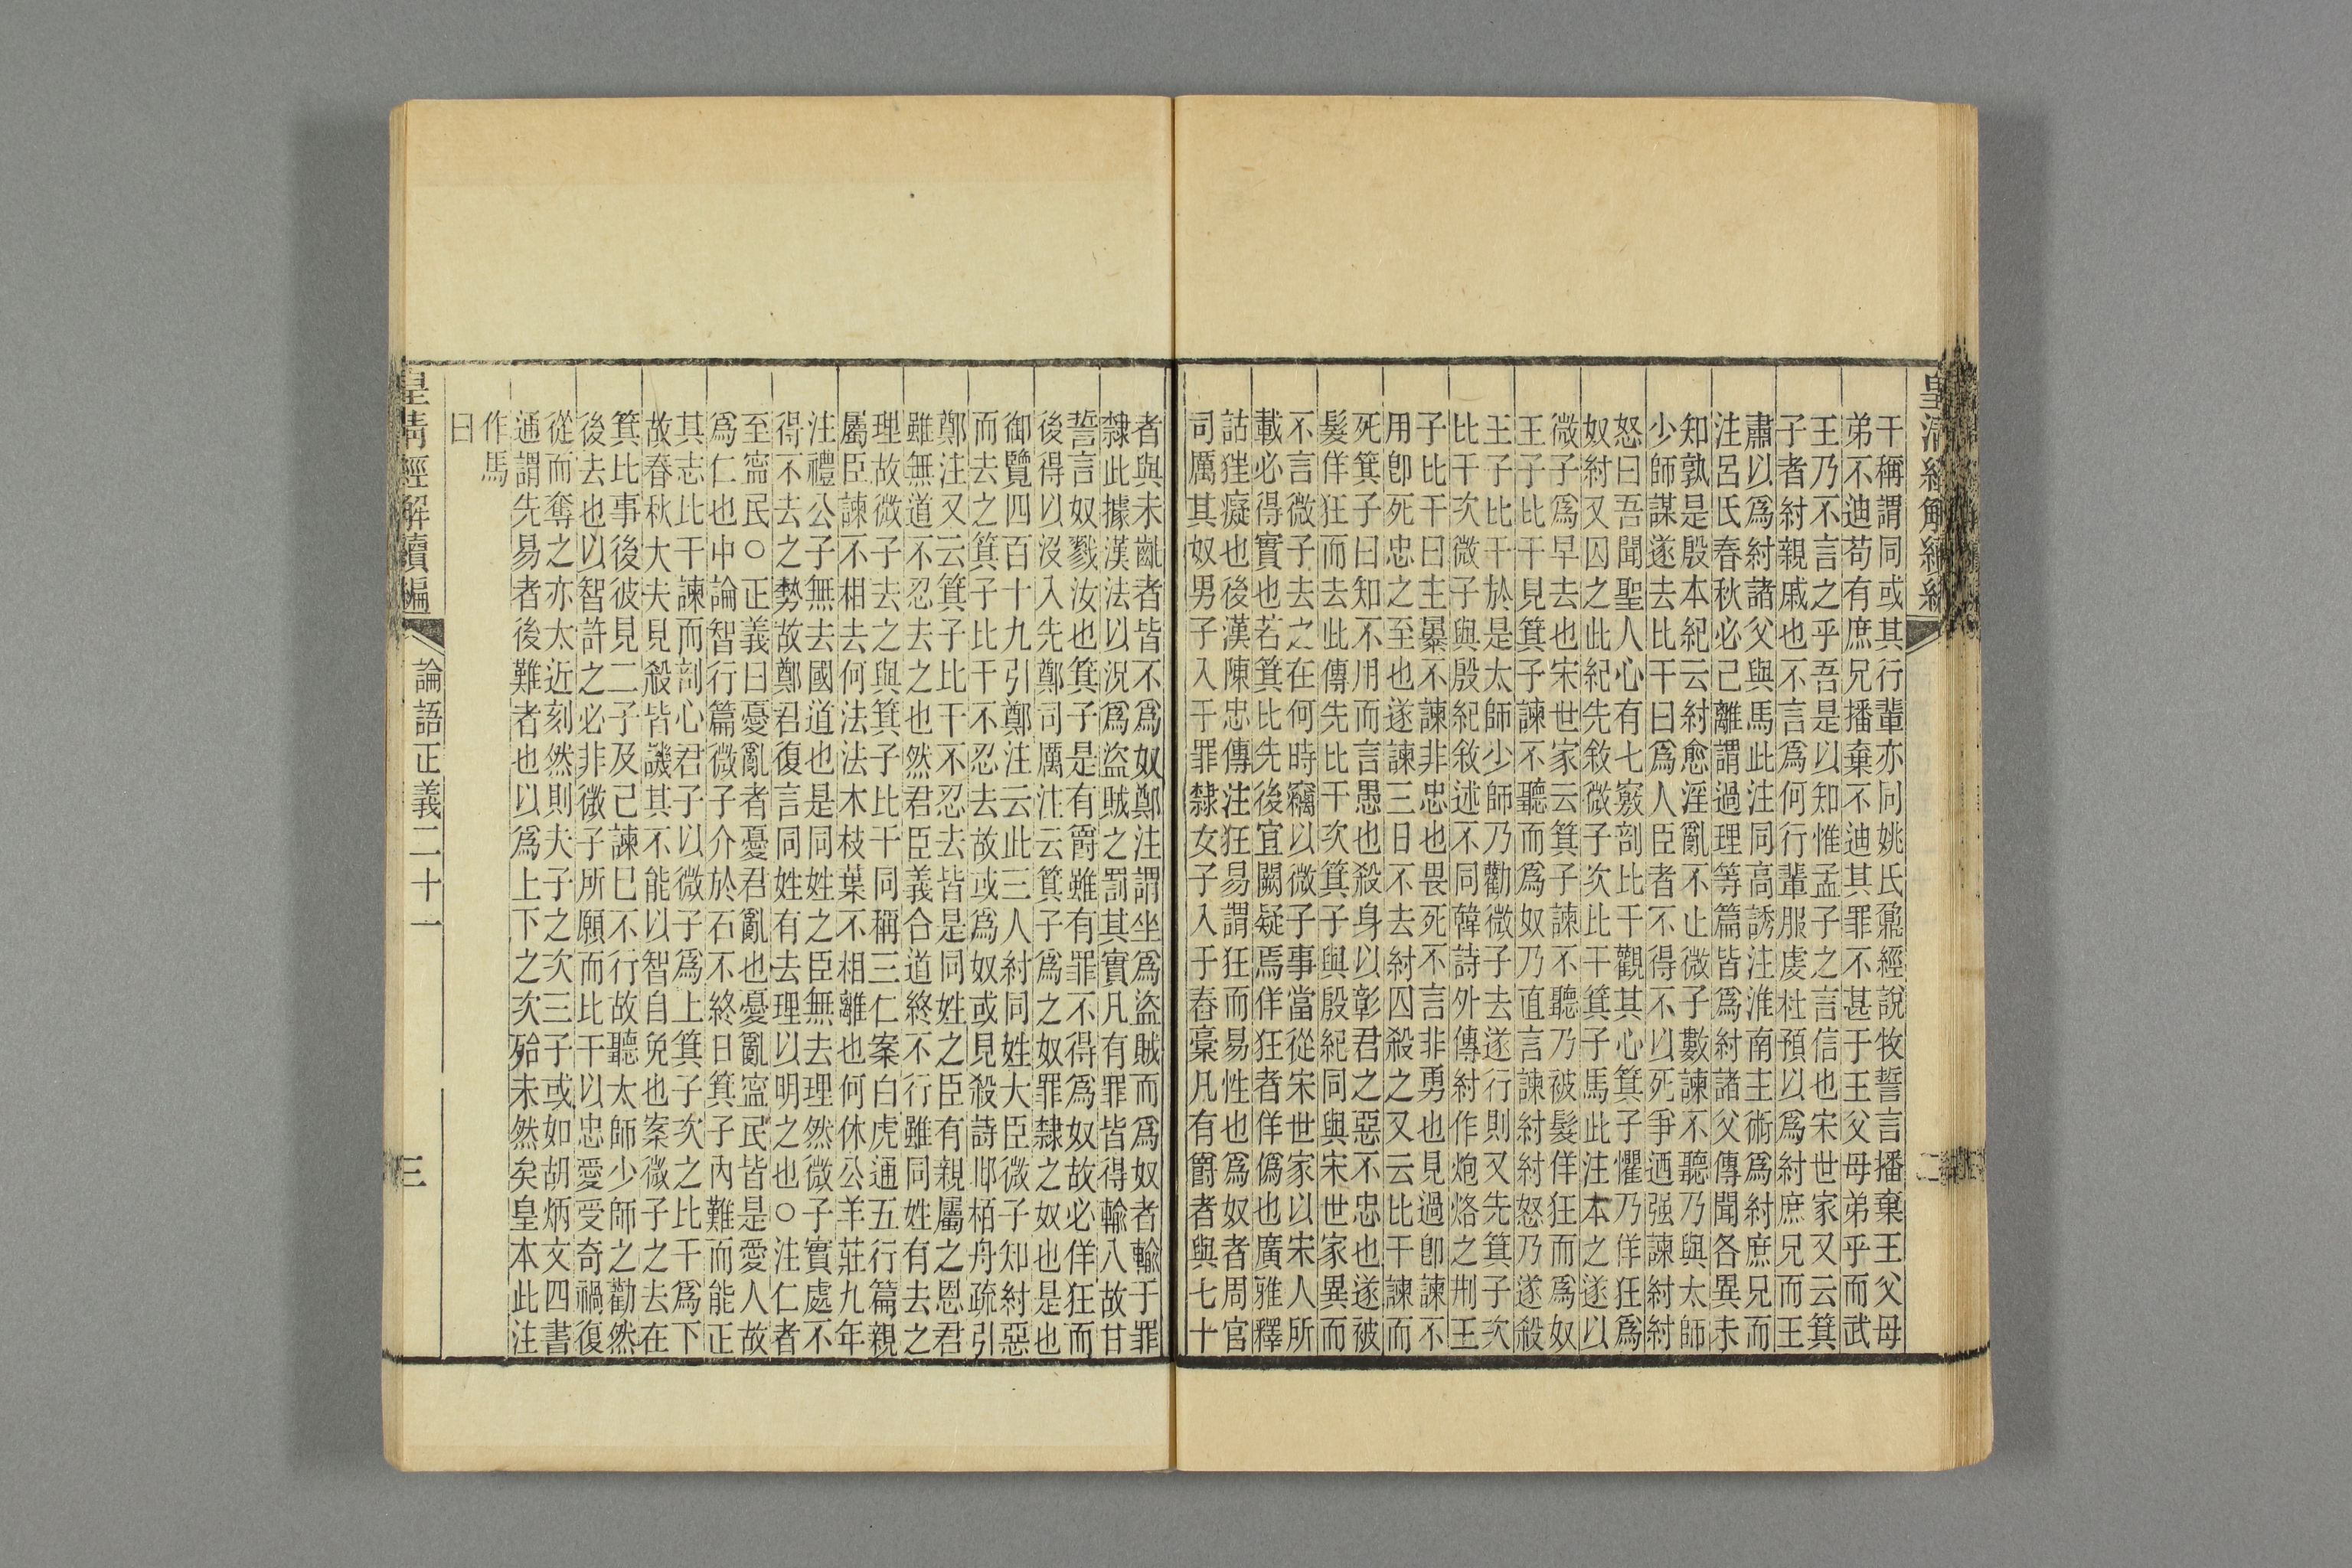 干稱謂同或其行輩亦同姚氏鼐經說牧誓言播棄王父母
弟不迪苟有庶兄播棄不迪其罪不甚于王父母弟乎而武
王乃不言之乎吾是以知惟孟子之言信也宋世家又云箕
子者紂親戚也不言爲何行輩服虔杜預以爲紂庶兄而王
肅以爲紂諸父與馬此注同高誘注淮南主術爲紂庶兄而
注呂氏春秋必己離謂過理等篇皆爲紂諸父傳聞各異未
知孰是殷本紀云紂愈淫亂不止微子數諫不聽乃與太師
少師謀遂去比干曰爲人臣者不得不以死爭迺强諫紂紂
怒曰吾聞聖人心有七竅剖比干觀其心箕子懼乃佯狂爲
奴紂又囚之此紀先敘微子次比干箕子馬此注本之遂以
微子爲早去也宋世家云箕子諫不聽乃被髮佯狂而爲奴
王子比干見箕子諫不聽而爲奴乃直言諫紂紂怒乃遂殺
王子比干於是太師少師乃勸微子去遂行則又先箕子次
比干次微子與殷紀敘述不同韓詩外傳紂作炮烙之刑王
子比干曰主暴不諫非忠也畏死不言非勇也見過卽諫不
用卽死忠之至也遂諫三日不去紂囚殺之又云比干諫而
死箕子曰知不用而言愚也殺身以彰君之惡不忠也遂被
髮佯狂而去此傳先比干次箕子與殷紀同與宋世家異而
不言微子去之在何時竊以微子事當從宋世家以宋人所
載必得實也若箕比先後宜闕疑焉佯狂者佯僞也廣雅釋
詁狴癡也後漢陳忠傳注狂易謂狂而易性也爲奴者周官
司厲其奴男子入于罪隸女子入于舂藁凡有爵者與七十
者與未齓者皆不爲奴鄭注謂坐爲盜賊而爲奴者輸于罪
隸此據漢法以況爲盜賊之罰其實凡有罪皆得輸入故甘
誓言奴戮汝也箕子是有爵雖有罪不得爲奴故必佯狂而
後得以沒入先鄭司厲注云箕子爲之奴罪隸之奴也是也
御覽四百十九引鄭注云此三人紂同姓大臣微子知紂惡
而去之箕子比干不忍去故或爲奴或見殺詩邶栢舟疏引
鄭注又云箕子比干不忍去皆是同姓之臣有親屬之恩君
雖無道不忍去之也然君臣義合道終不行雖同姓有去之
理故微子去之與箕子比干同稱三仁案白虎通五行篇親
屬臣諫不相去何法法木枝葉不相離也何休公羊莊九年
注禮公子無去國道也是同姓之臣無去理然微子實處不
得不去之勢故鄭君復言同姓有去理以明之也○注仁者
至寍民○正義曰憂亂者憂君亂也憂亂寍民皆是愛人故
爲仁也中論智行篇微子介於石不終日箕子內難而能正
其志比干諫而剖心君子以微子爲上箕子次之比干爲下
故春秋大夫見殺皆譏其不能以智自免也案微子之去在
箕比事後彼見二子及己諫巳不行故聽太師少師之勸然
後去也以智許之必非微子所願而比干以忠愛受奇禍復
從而奪之亦太近刻然則夫子之次三子或如胡炳文四書
通謂先易者後難者也以爲上下之次殆未然矣皇本此注
作馬
曰
皇清經解續編
論語正義二十一
三